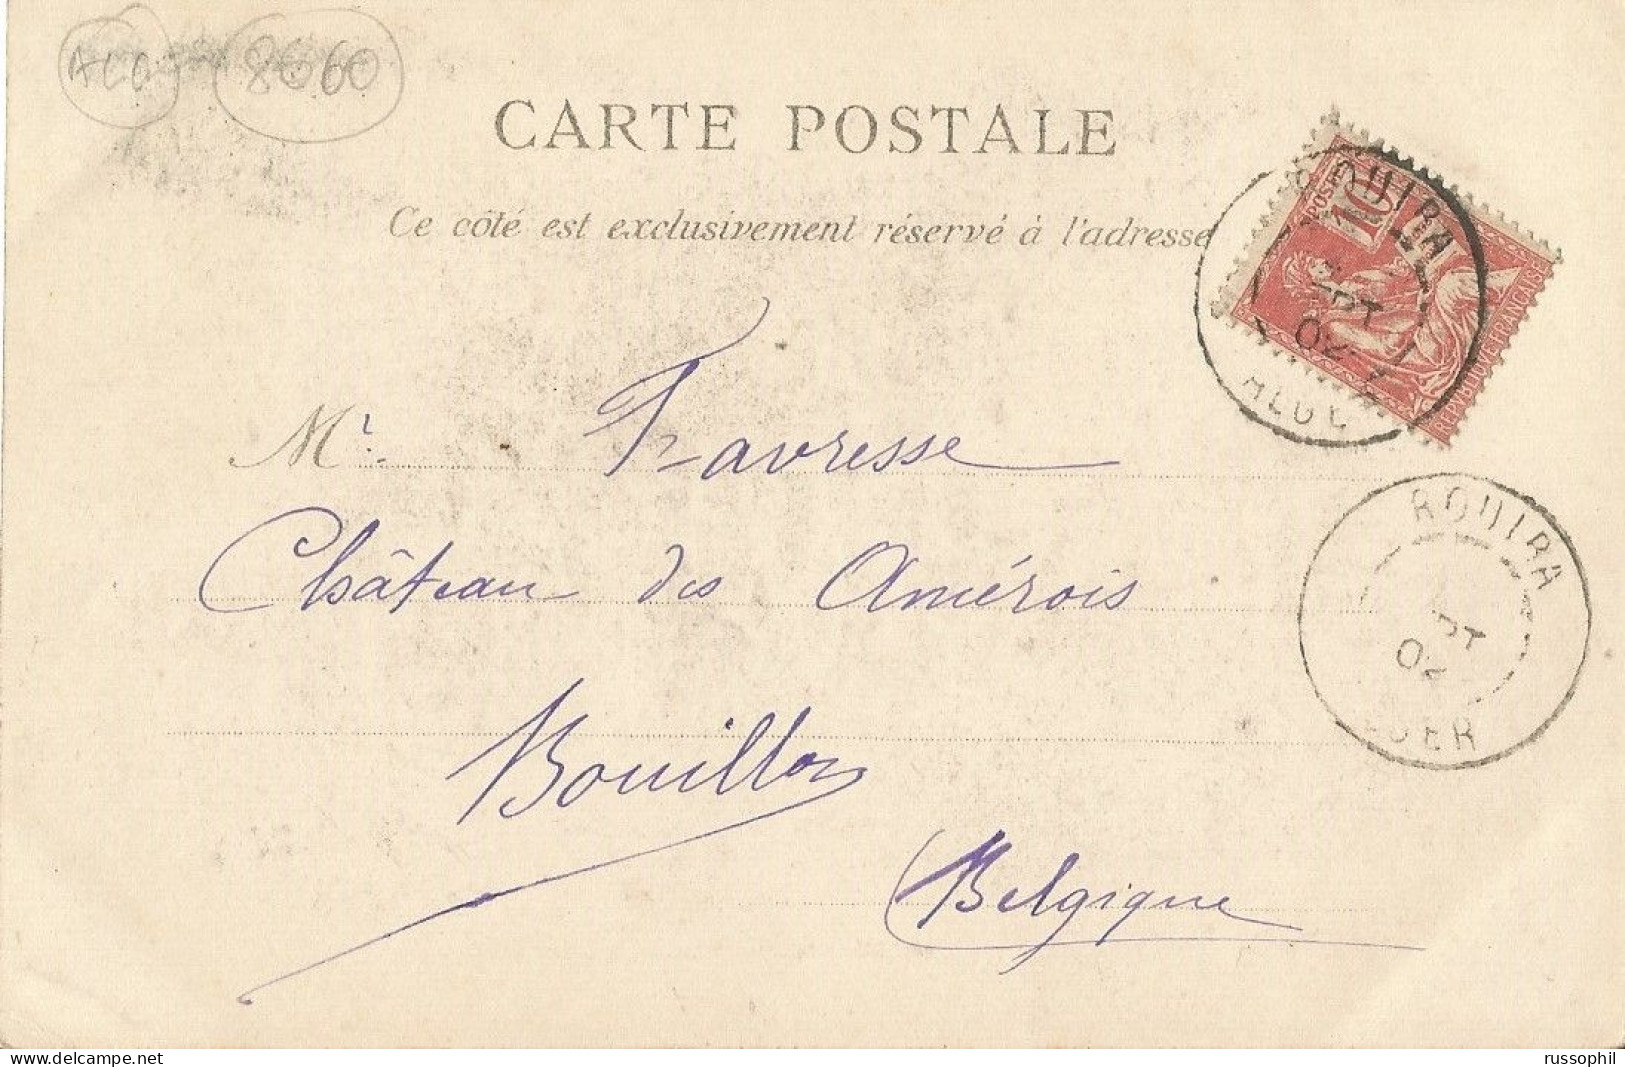 ALG 8060
CARTE POSTALE
Ce côté est exclusivement réservé à l'adresse
POSTES
10
REPUBLIQUE FRANÇAISE
ROUIRA
02
ALGER
Mr. Favresse
Château des Amérois
Bouillon
Belgique
ROUIRA
02
ALGER
www.delcampe.net
russophil